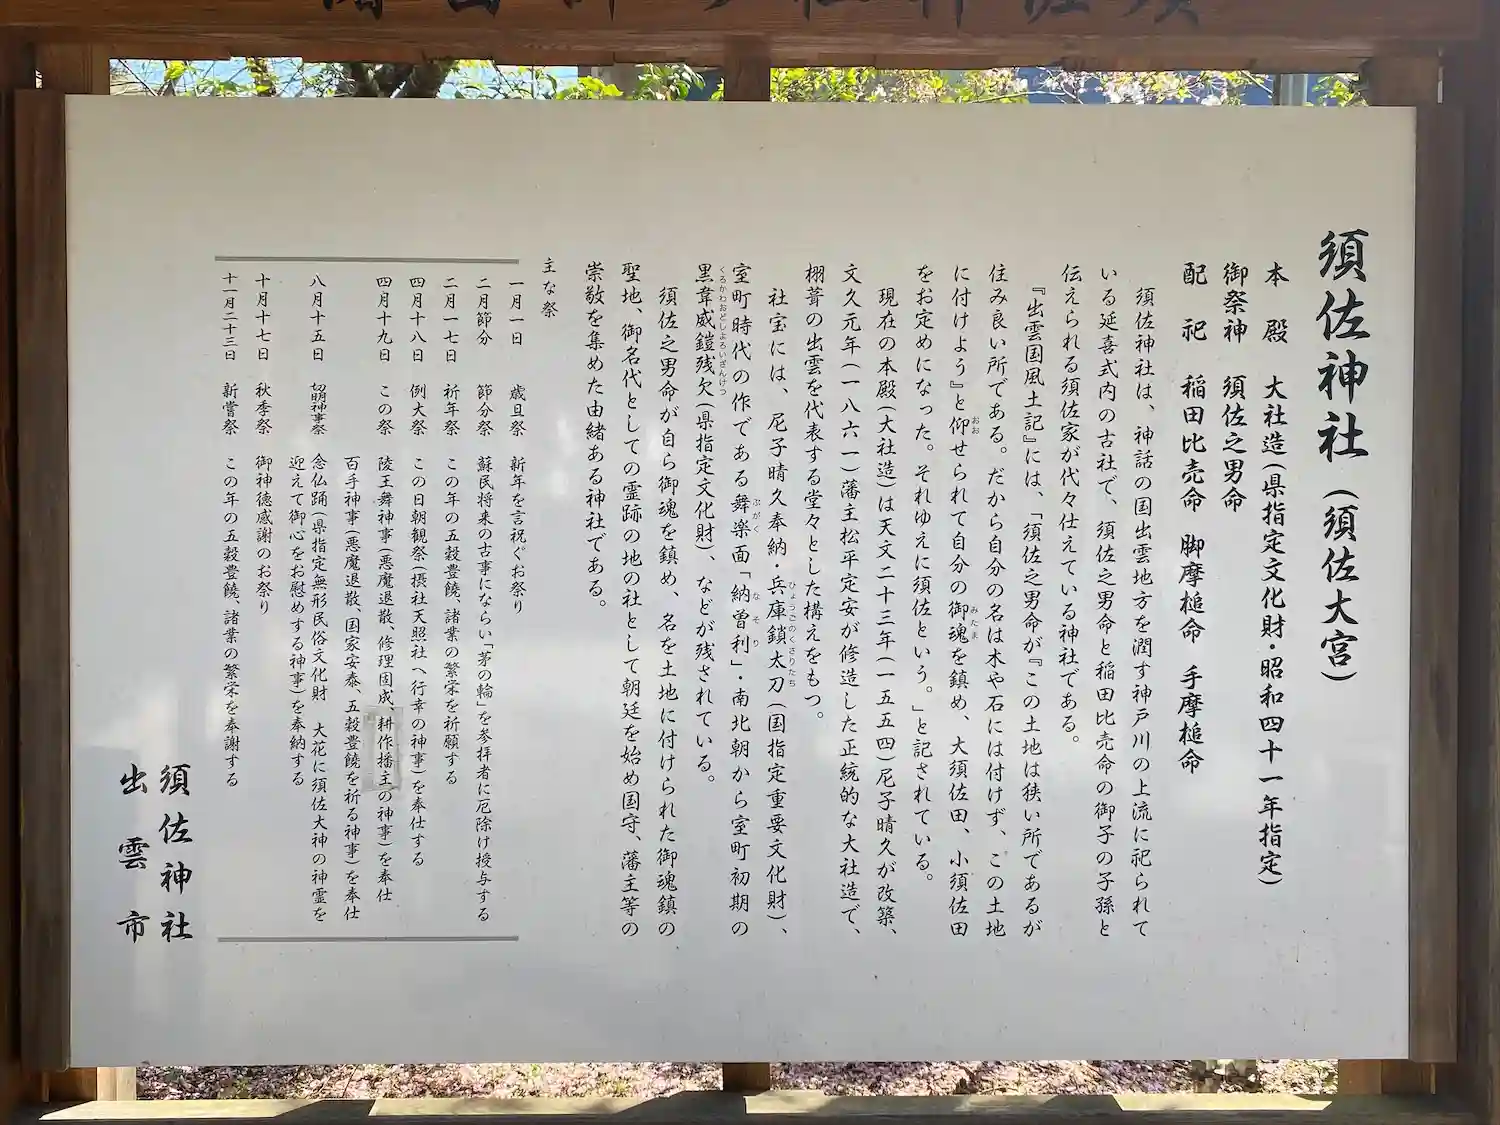 須佐神社（須佐大宮）
本殿　大社造（県指定文化財・昭和四十一年指定）
御祭神　須佐之男命
配祀　稲田比売命　脚摩槌命　手摩槌命
須佐神社は、神話の国出雲地方を潤す神戸川の上流に祀られて
いる延喜式内の古社で、須佐之男命と稲田比売命の御子の子孫と
伝えられる須佐家が代々仕えている神社である。
『出雲国風土記』には、「須佐之男命が『この土地は狭い所であるが
住み良い所である。だから自分の名は木や石には付けず、この土地
に付けよう』と仰せられて自分の御魂を鎮め、大須佐田、小須佐田
をお定めになった。それゆえに須佐という。」と記されている。
現在の本殿（大社造）は天文二十三年（一五五四）尼子晴久が改築、
文久元年（一八六一）藩主松平定安が修造した正統的な大社造で、
栩葺の出雲を代表する堂々とした構えをもつ。
社宝には、尼子晴久奉納・兵庫鎖太刀（国指定重要文化財）、
室町時代の作である舞楽面「納曽利」・南北朝から室町初期の
黒韋威鎧残欠（県指定文化財）、などが残されている。
須佐之男命が自ら御魂を鎮め、名を土地に付けられた御魂鎮の
聖地、御名代としての霊跡の地の社として朝廷を始め国守、藩主等の
崇敬を集めた由緒ある神社である。
主な祭
一月一日　歳旦祭　新年を言祝ぐお祭り
二月節分　節分祭　蘇民将来の古事にならい「茅の輪」を参拝者に厄除け授与する
二月一七日　祈年祭　この年の五穀豊饒、諸業の繁栄を祈願する
四月十八日　例大祭　この日朝観祭（摂社天照社へ行幸の神事）を奉仕する
四月十九日　この祭　陵王舞神事（悪魔退散、修理固成、耕作播主の神事）を奉仕
百手神事（悪魔退散、国家安泰、五穀豊饒を祈る神事）を奉仕
八月十五日　切明神事祭　念仏踊（県指定無形民俗文化財　大花に須佐大神の神霊を
迎えて御心をお慰めする神事）を奉納する
十月十七日　秋季祭　御神徳感謝のお祭り
十一月二十三日　新嘗祭　この年の五穀豊饒、諸業の繁栄を奉謝する
須佐神社
出雲市